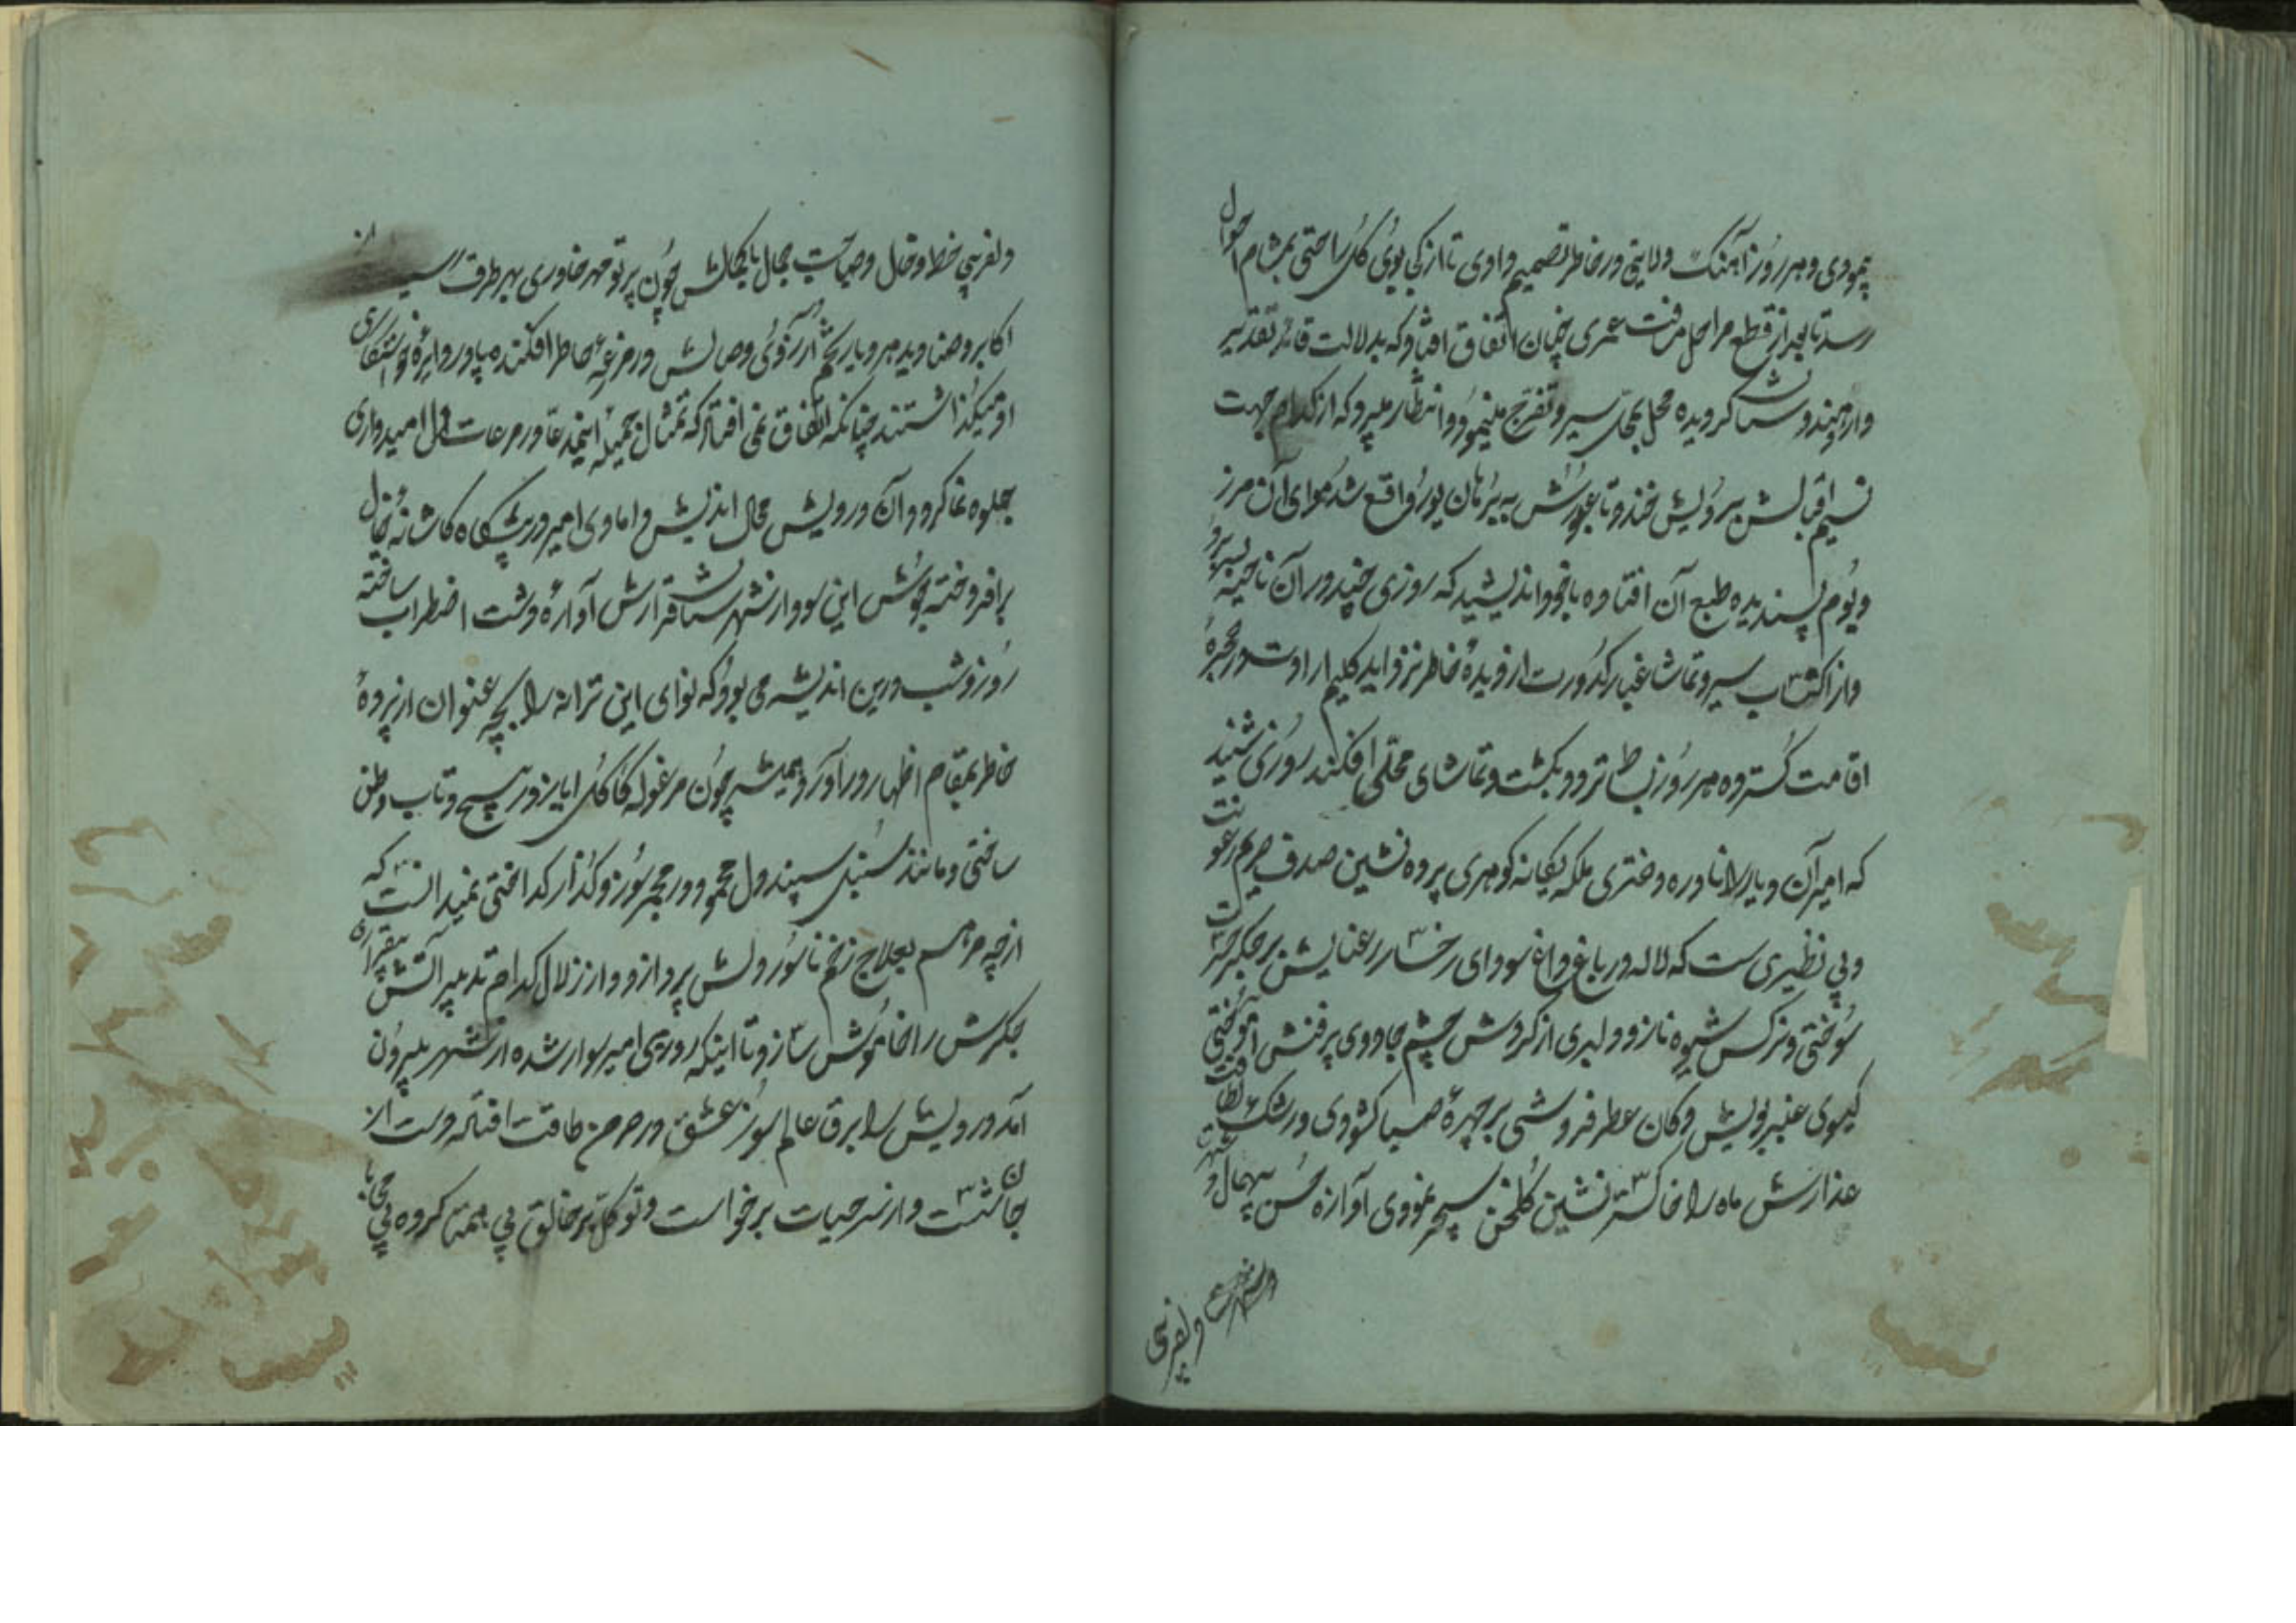 پیمودی و هر روز آهنک ولایتی در خاطر تصمیم دادی تا از کی بوی کل راحتی بمشام احوال
رسد تا بعد از قطع مراحل مرافت عمری چنان اتفاق افتاد که بدلالت قائد تقدیر
وارد هندوستان کردیده محل بمحل سیر و تفرج مینمود و انتظار میبرد که از کدام جهت
نسیم اقبالش برویش خندد تا عبورش به برهان پور واقع شد هوای آن مرز
و بوم پسندیده طبع آن افتاده با خود اندیشید که روزی چند در آن ناحیه بسر برد
و از اکتساب سیر و تماشا غبار کدورت از دیدهٔ خاطر نزداید کلیم ارادت در حجرهٔ
اقامت کسترده هر روز بساط تردد بکشت و تماشای محلی افکند روزی شنید
که امیر آن دیار را نادره دختری بلکه یکانه کوهری پرده نشین صدف حریم رعونت
و بی نظیری ست که لاله در باغ داغ سودای رخسار رعنایش بر جکر حسرت
سوختی و نرکس شیوه ناز و دلبری از کردش چشم جادوی پرفنش آموختی
کیسوی عنبر بویش دکان عطر فروشی بر چهرهٔ صبا کشودی و رشک لطافت
عذارش ماه را خاکستر نشین کلخن سپهر نمودی آوازه حسن بیهمال و شهرت
دلفریبی
دلفریبی خط و خال و صباحت جمال با کمالش چون پرتو مهر خاوری بهر طرف رسید از
اکابر و صنادید هر دیار تخم آرزوی وصالش در مزرعهٔ خاطر افکنده پا در دایرهٔ خواستکاری
او میکذاشتند چنانکه اتفاق نمی افتاد که تمثال جمیلهٔ اینمدعا در مرعات دل امیدواری
جلوه نما کردد آن درویش محال اندیش دامادی امیر در پیشکاه کاشانه خیال
برافروخته جوش این سودا از شهرستان قرارش آوارهٔ دشت اضطراب ساخته
روز و شب درین اندیشه می بود که نوای این ترانه را بچه عنوان از پردهٔ
خاطر بمقام اظهار در آورد و همیشه چون مرغوله کاکل ایاز در پیچ و تاب وطن
ساختی و مانند سنبل سپند دل محمود در مجمر سوز و کداز کداختی نمیدانست که
از چه مرهم بعلاج زخم ناسور دلش پردازد و از زلال کدام تدبیر آتش بیقراری
جکرش را خاموش سازد تا اینکه روزی امیر سوار شده از شهر بیرون
آمد درویش را برق عالم سوز عشق در خرمن طاقت افتاد دست از
جان شست و از سر حیات برخواست و توکل بر خالق بی همتا کرده بی محابا